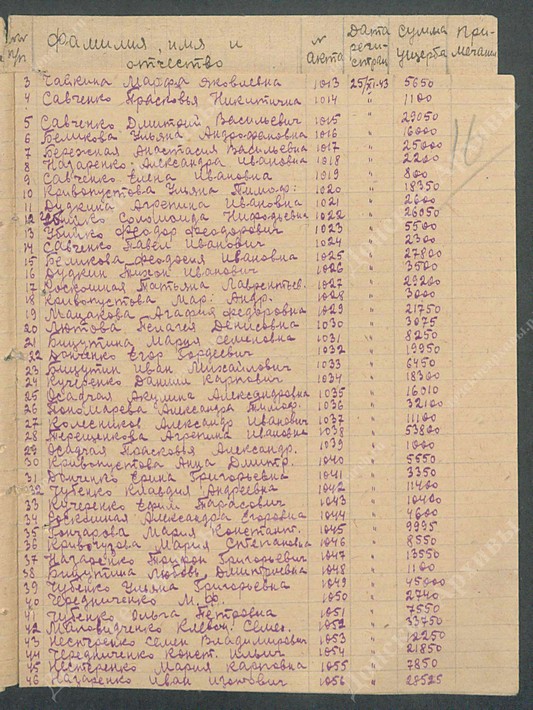 №№ п/п Фамилия, имя и отчество № акта Дата регистрац. Сумма ущерба Примечание
16
3 Чайкина Марфа Яковлевна 1013 25/XI-43 5650
4 Савченко Прасковья Никитична 1014 " 1100
5 Савченко Дмитрий Васильевич 1015 " 29050
6 Беликова Ульяна Андрофановна 1016 " 16000
7 Бережная Анастасия Васильевна 1017 " 25000
8 Назаренко Александра Ивановна 1018 " 2200
9 Савченко Елена Ивановна 1019 " 800
10 Кривопустова Ульяна Тимоф: 1020 " 18350
11 Дудкина Агрепина Ивановна 1021 " 2600
12 Соломонида Нифодьевна 1022 " 26050
13 Убийко Феодор Феодорович 1023 " 5500
14 Савченко Павел Иванович 1024 " 2300
15 Беликова Феодосия Ивановна 1025 " 27800
16 Дудкин Тихон Иванович 1026 " 3500
17 Роскошная Татьяна Лаврентьев. 1027 " 29200
18 Кривопустова Мар: Андр. 1028 " 3000
19 Мацакова Агафия Федоровна 1029 " 21750
20 Лютова Пелагея Денисовна 1030 " 3075
21 Бицутина Мария Семеновна 1031 " 8250
22 Донченко Егор Гордеевич 1032 " 19950
23 Бицутин Иван Михайлович 1033 " 6450
24 Кучеренко Даниил Карпович 1034 " 18300
25 Осадчая Акулина Александровна 1035 " 16010
26 Пономарева Александра Тимоф. 1036 " 32100
27 Колесников Александр Иванович 1037 " 11100
28 Терещенкова Агрепина Ивановна 1038 " 53800
29 Осадчая Прасковья Александр. 1039 " 1000
30 Кривопустова Анна Дмитр. 1040 " 5550
31 Донченко Ерина Григорьевна 1041 " 3350
32 Чубенко Клавдия Андреевна 1042 " 11400
33 Кучеренко Ефим Тарасович 1043 " 10400
34 Роскошная Александра Егоровна 1044 " 4600
35 Гончарова Мария Констант. 1045 " 9995
36 Мария Степановна 1046 " 8550
37 Назаренко Григорьевич 1047 " 13550
38 Бицутина Любовь Дмитриевна 1048 " 1100
39 Чубенко Ульяна Григорьевна 1049 " 45000
40 Чередниченко М. Ф. 1050 " 2740
41 Чубенко Ольга Петровна 1051 " 7550
42 Семен. 1052 " 33750
43 Нестеренко Семен Владимирович 1053 " 12250
44 Чередниченко Конст. Ильич 1054 " 21850
45 Нестеренко Мария Карповна 1055 " 7850
46 Назаренко Иван Изотович 1056 " 28525